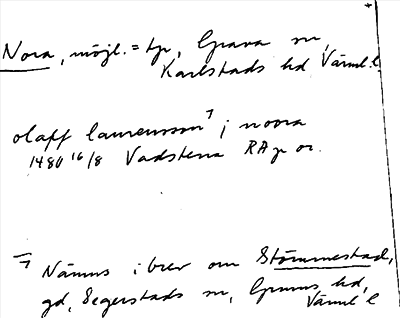 Nora, möjl. = tp, Grava sn,
Karlstads hd Värml. l.
olaff laurensson ⁊ j noora
1480 16/8 Vadstena RAp or.
⁊ Nämns i brev om Stömmestad,
gd, Segerstads sn, Grums hd,
Värml l